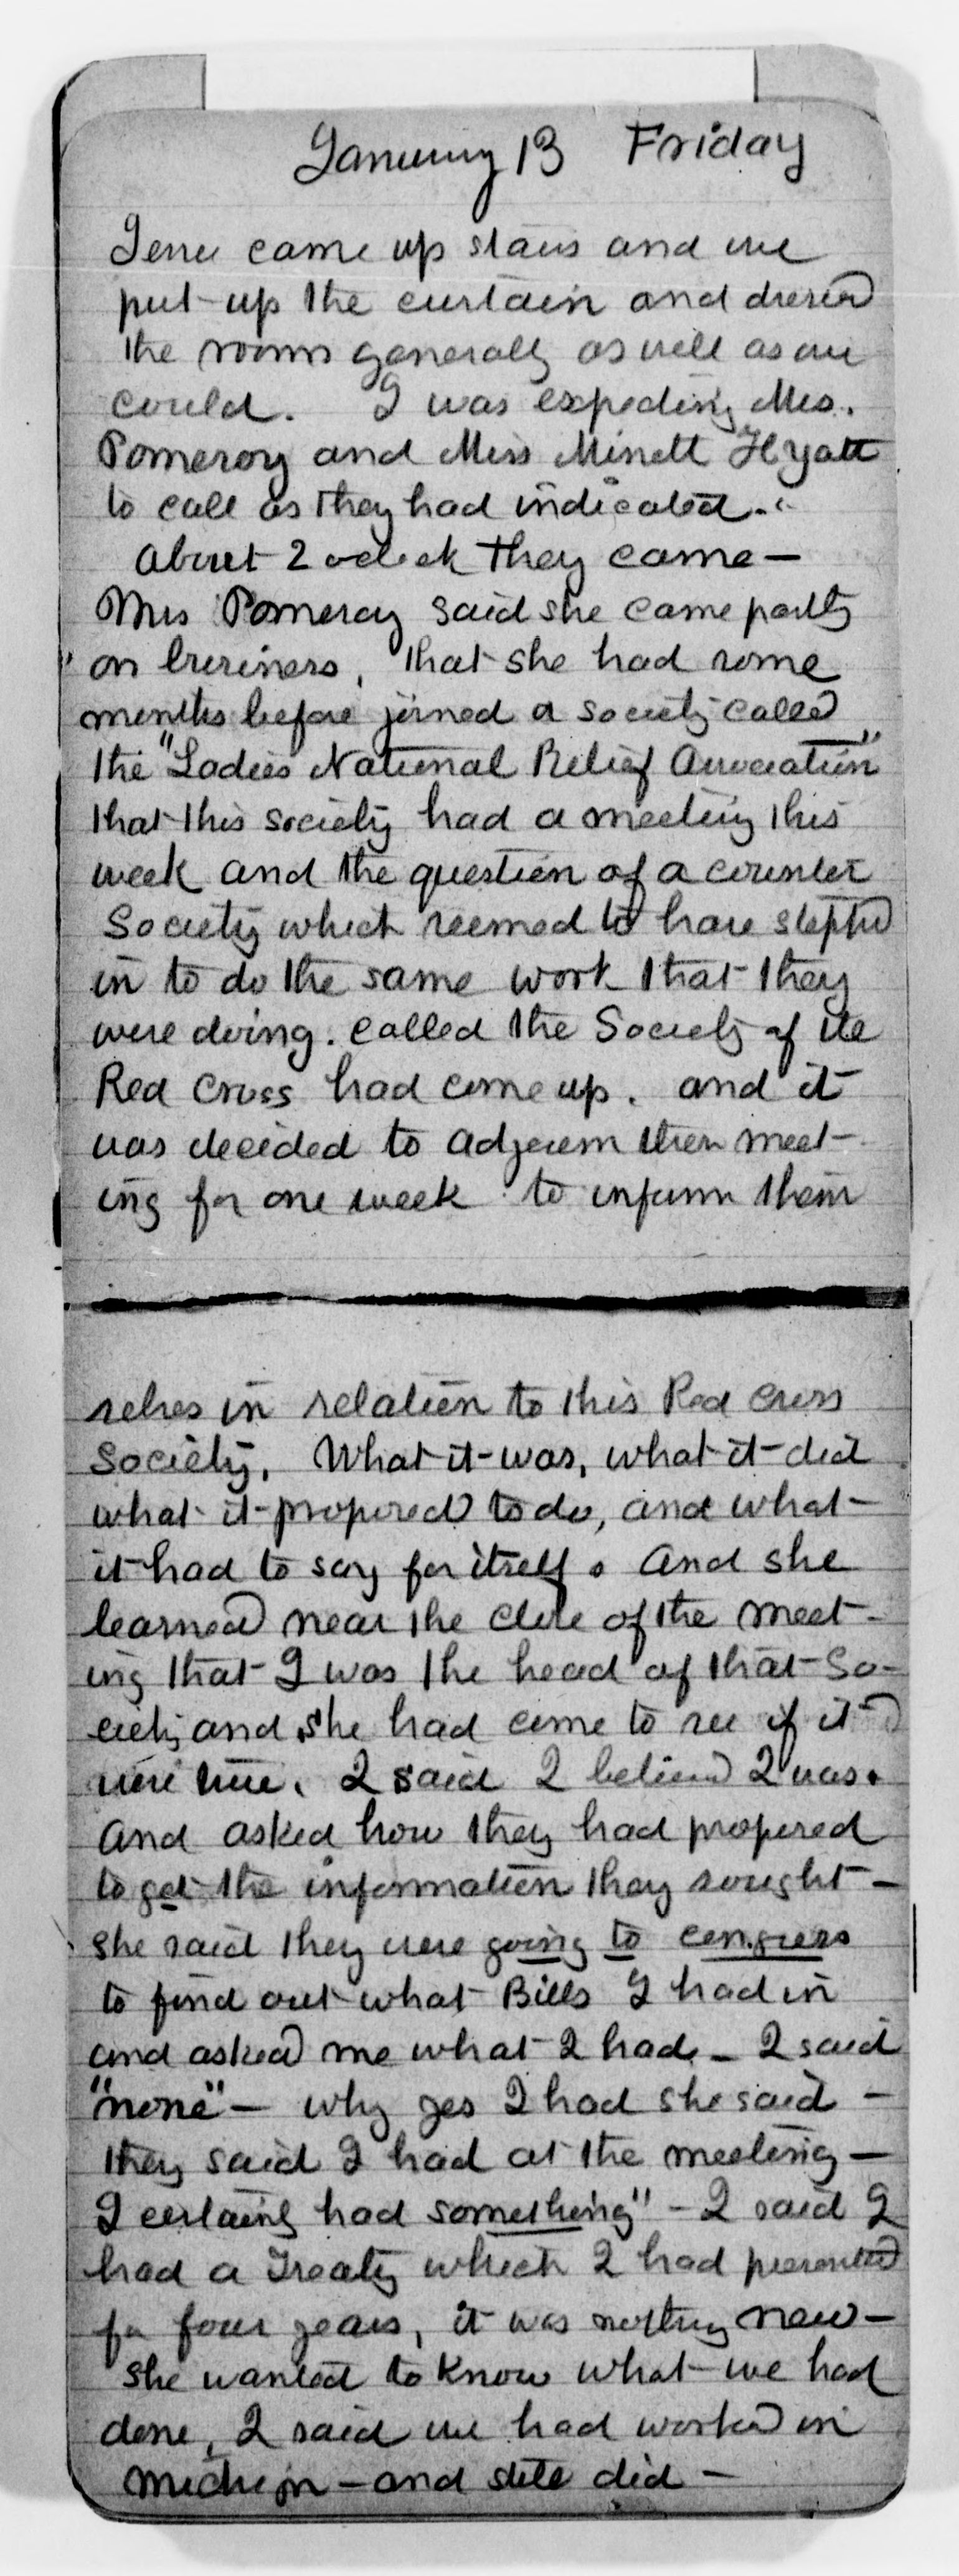 January 13 Friday
Jene came up stairs and we
put up the curtain and dressed
the rooms generally as well as we
could. I was expecting Mrs.
Pomeroy and Miss Minett Hyatt
to call as they had indicated.
About 2 oclock they came —
Mrs Pomeroy said she came partly
on business, that she had some
months before joined a society called
the "Ladies National Relief Association"
that this society had a meeting this
week and the question of a counter
Society which seemed to have stepped
in to do the same work that they
were doing. called the Society of the
Red Cross had come up. and it
was decided to adjourn their meet-
ing for one week to inform them
selves in relation to this Red Cross
Society. What it was, what it did
what it proposed to do, and what
it had to say for itself. And she
learned near the close of the meet-
ing that I was the head of that So-
ciety and she had come to see if it
were true. I said I believed I was.
And asked how they had proposed
to get the information they sought —
she said they were going to congress
to find out what Bills I had in
and asked me what I had — I said
"none" — why yes I had she said —
they said I had at the meeting —
I certainly had something" — I said I
had a Treaty which I had presented
for four years, it was nothing new —
she wanted to know what we had
done, I said we had worked in
Michigan — and still did —